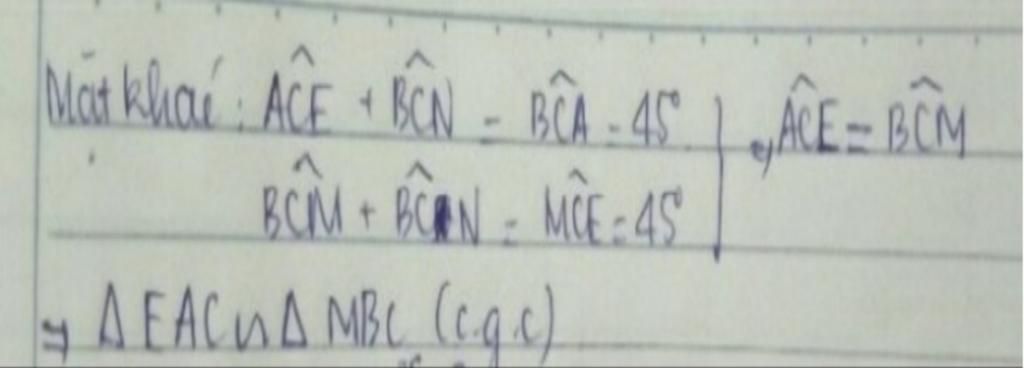 Mặt khác: \widehat{ACE} + \widehat{BCN} = \widehat{BCA} = 45° } ⇒ \widehat{ACE} = \widehat{BCM}
\widehat{BCM} + \widehat{BCN} = \widehat{MCE} = 45°
⇒ Δ EAC ∽ Δ MBC (c.g.c)